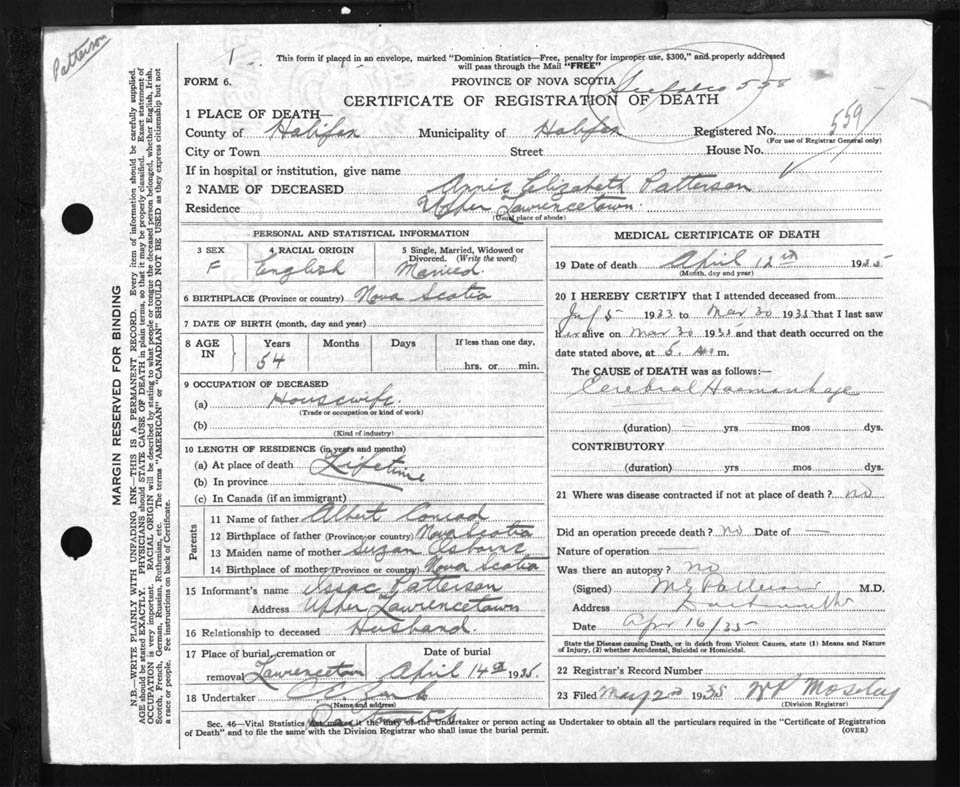 Patterson
1
This form if placed in an envelope, marked "Dominion Statistics—Free, penalty for improper use, $300," and properly addressed
will pass through the Mail "FREE"
FORM 6.
PROVINCE OF NOVA SCOTIA
558
CERTIFICATE OF REGISTRATION OF DEATH
1 PLACE OF DEATH—
County of Halifax Municipality of Halifax Registered No. 559
(For use of Registrar General only)
City or Town Street House No.
If in hospital or institution, give name
2 NAME OF DECEASED Annie Elizabeth Patterson
Residence Upper Lawrencetown.
(Usual place of abode)
PERSONAL AND STATISTICAL INFORMATION
3 SEX 4 RACIAL ORIGIN 5 Single, Married, Widowed or
Divorced. (Write the word)
F English Married.
6 BIRTHPLACE (Province or country) Nova Scotia
7 DATE OF BIRTH (month, day and year)
8 AGE IN Years Months Days If less than one day,
54 hrs. or min.
9 OCCUPATION OF DECEASED
(a) Housewife.
(Trade or occupation or kind of work)
(b)
(Kind of industry)
10 LENGTH OF RESIDENCE (in years and months)
(a) At place of death Lifetime
(b) In province
(c) In Canada (if an immigrant)
Parents
11 Name of father Albert Conrad
12 Birthplace of father (Province or country) Nova Scotia
13 Maiden name of mother Suzan Osborne
14 Birthplace of mother (Province or country) Nova Scotia
15 Informant's name Isaac Patterson
Address Upper Lawrencetown
16 Relationship to deceased Husband.
17 Place of burial, cremation or Date of burial
removal Lawrencetown April 14th 1935
18 Undertaker
(Name and address)
Dartmouth
MEDICAL CERTIFICATE OF DEATH
19 Date of death April 12th 1935
(Month, day and year)
20 I HEREBY CERTIFY that I attended deceased from
July 5 1933 to Mar 30 1935 that I last saw
her alive on Mar 30 1935 and that death occurred on the
date stated above, at 5. m.
The CAUSE of DEATH was as follows:—
Cerebral Haemorrhage
(duration) — yrs — mos dys.
CONTRIBUTORY
(duration) yrs mos dys.
21 Where was disease contracted if not at place of death? no
Did an operation precede death? no Date of —
Nature of operation —
Was there an autopsy? no
(Signed) M.D.
Address Dartmouth
Date Apr 16/35
State the Disease causing Death, or in death from Violent Causes, state (1) Means and Nature
of Injury, (2) whether Accidental, Suicidal or Homicidal.
22 Registrar's Record Number
23 Filed May 2nd 1935 W P Moseley
(Division Registrar)
Sec. 46—Vital Statistics Act makes it the duty of the Undertaker or person acting as Undertaker to obtain all the particulars required in the "Certificate of Registration
of Death" and to file the same with the Division Registrar who shall issue the burial permit.
(OVER)
MARGIN RESERVED FOR BINDING
N.B.—WRITE PLAINLY WITH UNFADING INK—THIS IS A PERMANENT RECORD. Every item of information should be carefully supplied.
AGE should be stated EXACTLY. PHYSICIANS should STATE CAUSE OF DEATH in plain terms, so that it may be properly classified. Exact statement of
OCCUPATION is very important. RACIAL ORIGIN will be described by stating to what people or tongue the deceased person belonged, whether English, Irish,
Scotch, French, German, Russian, Ruthenian, etc. The terms "AMERICAN" or "CANADIAN" SHOULD NOT BE USED as they express citizenship but not
a race or people. See instructions on back of Certificate.